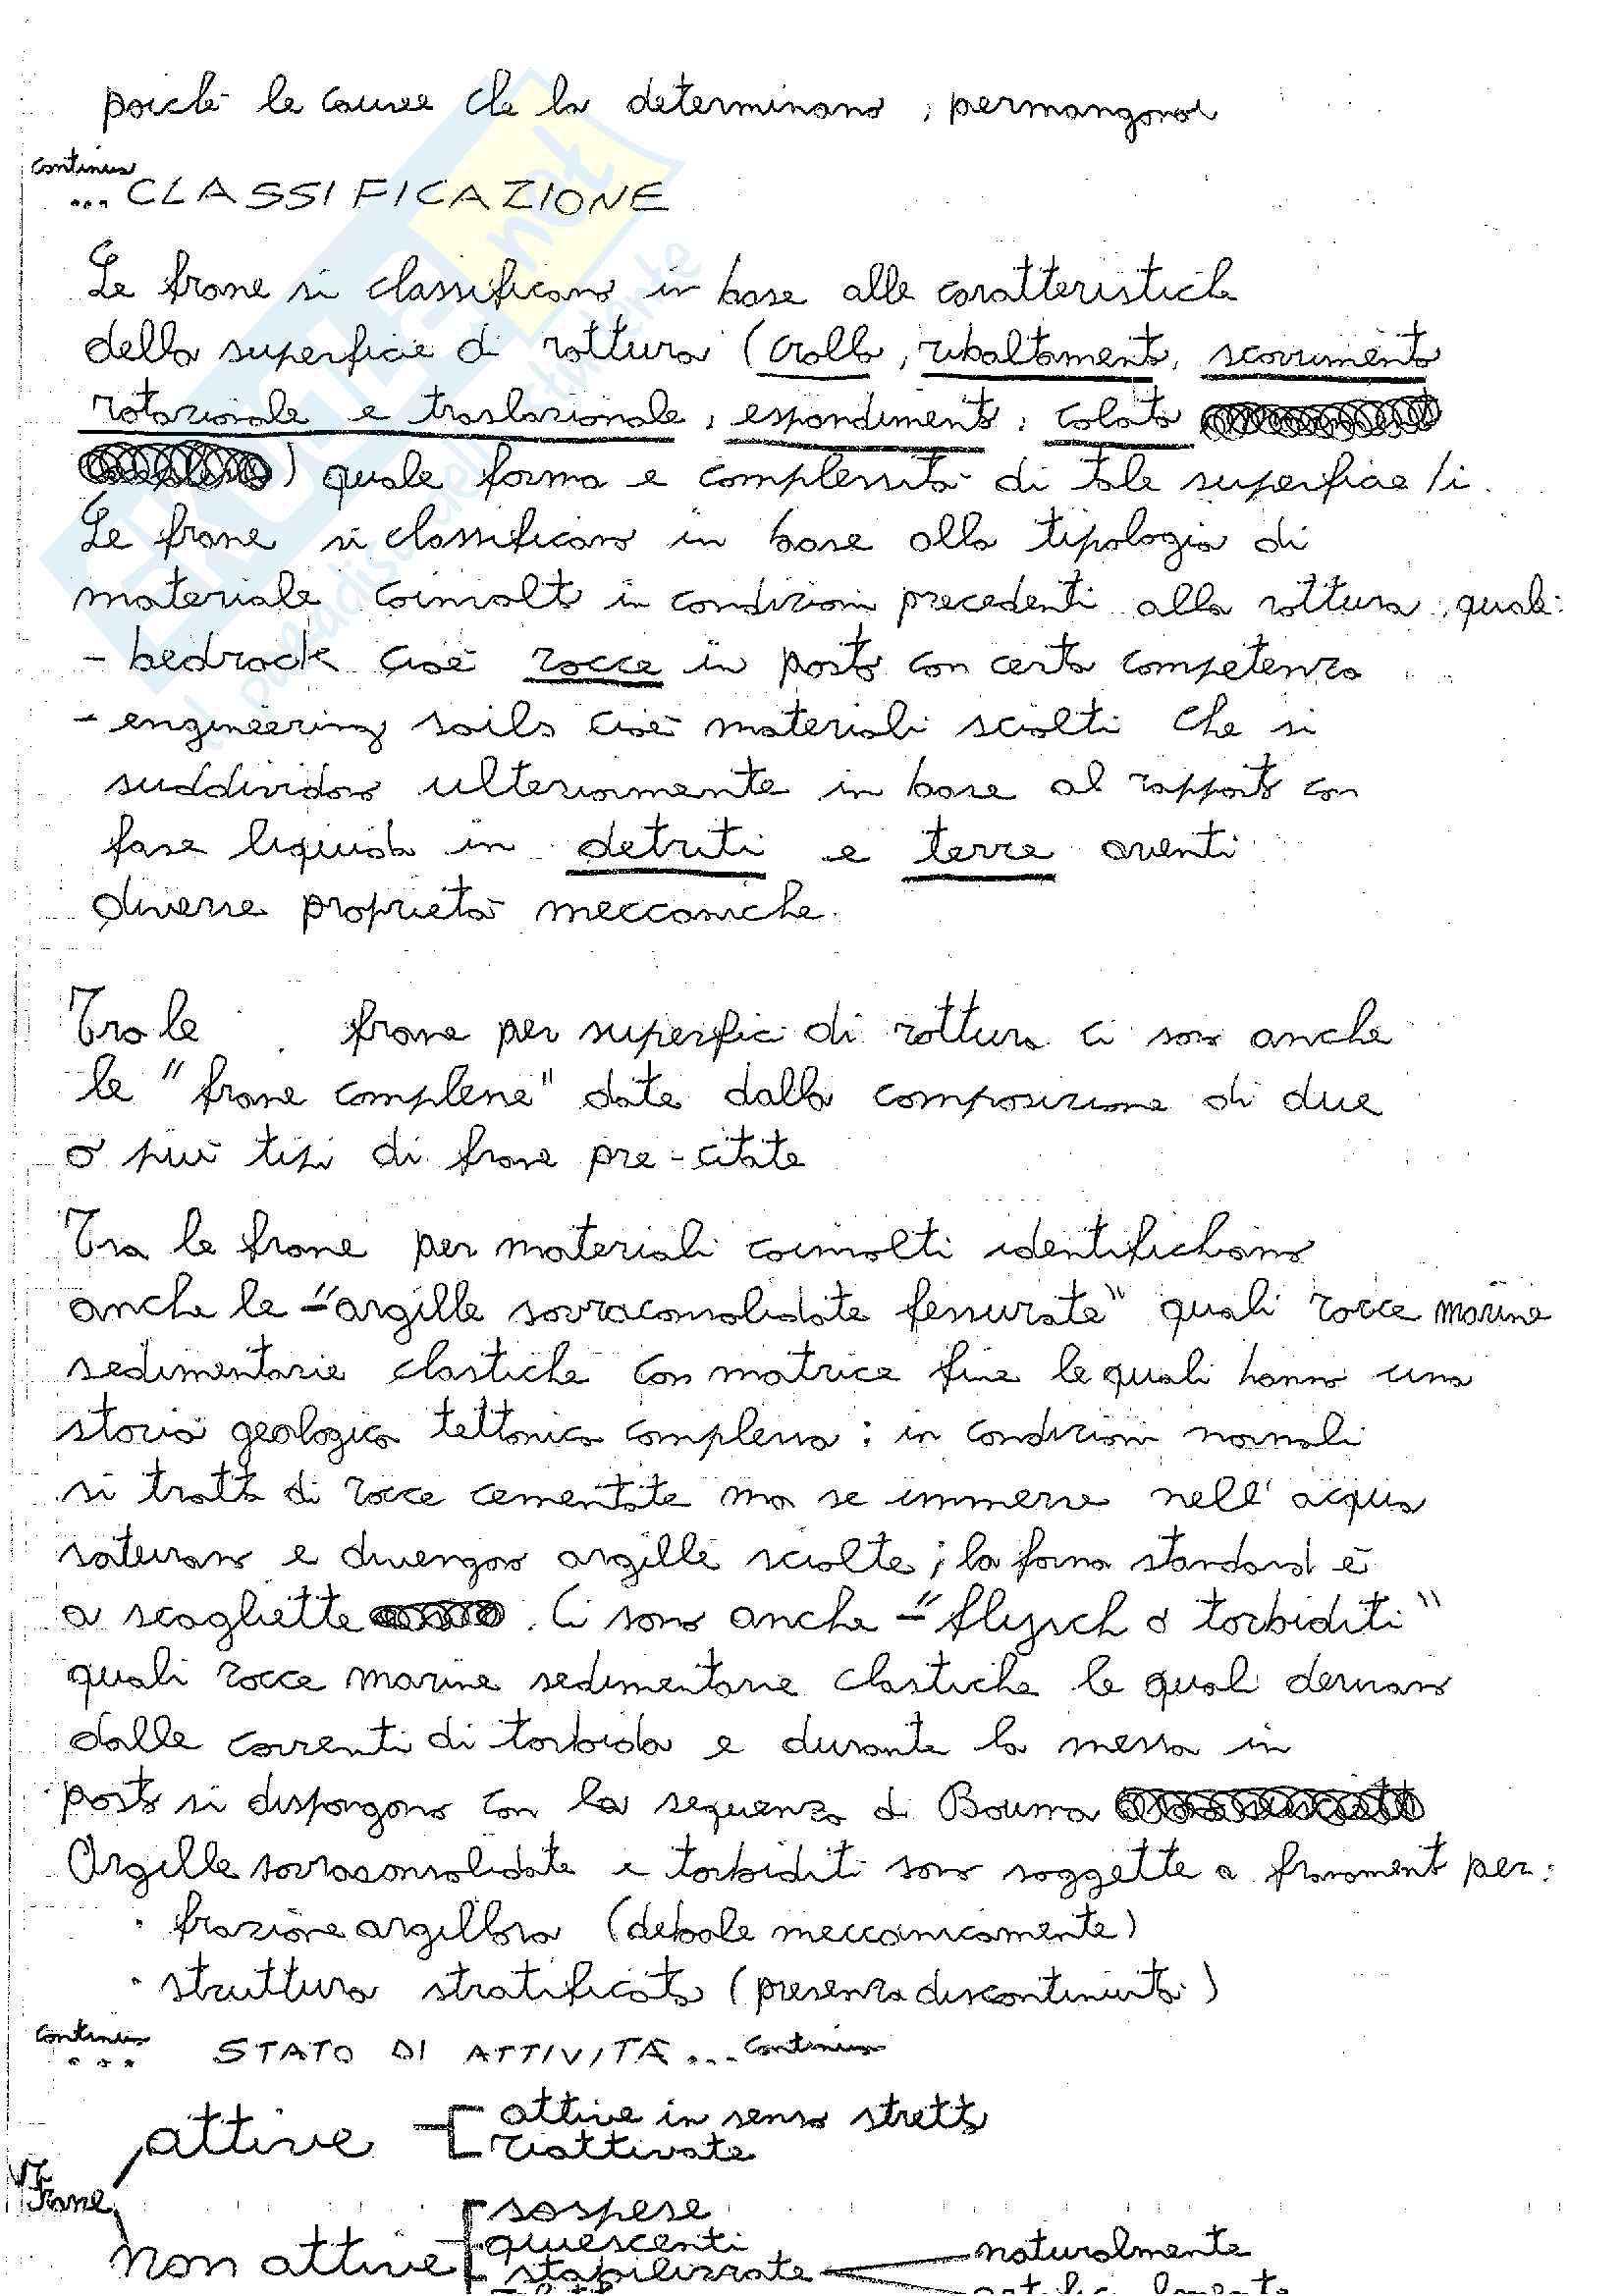 poiché le cause che la determinano, permangono
continua
... CLASSIFICAZIONE
Le frane si classificano in base alle caratteristiche
della superficie di rottura (crollo, ribaltamento, scorrimento
rotazionale e traslazionale, espandimento, colata
) quale forma e complessità di tale superficie/i.
Le frane si classificano in base alla tipologia di
materiale coinvolto in condizioni precedenti alla rottura, quali:
- bedrock cioè rocce in posto con certa competenza
- engineering soils cioè materiali sciolti che si
suddividono ulteriormente in base al rapporto con
fase liquida in detriti e terre aventi
diverse proprietà meccaniche.
Tra le frane per superfici di rottura ci sono anche
le "frane complesse" date dalla composizione di due
o più tipi di frane pre-citate
Tra le frane per materiali coinvolti identifichiamo
anche le - "argille sovraconsolidate fessurate" quali rocce marine
sedimentarie clastiche con matrice fine le quali hanno una
storia geologica tettonica complessa: in condizioni normali
si tratta di rocce cementate ma se immerse nell'acqua
saturano e divengono argille sciolte; la forma standard è
a scagliette. Ci sono anche - "flysch o torbiditi"
quali rocce marine sedimentarie clastiche le quali derivano
dalle correnti di torbida e durante la messa in
posto si dispongono con la sequenza di Bouma
Argille sovraconsolidate e torbiditi sono soggette a franamenti per:
· frazione argillosa (debole meccanicamente)
· struttura stratificata (presenza discontinuità)
continua
... STATO DI ATTIVITÀ... continua
attive
attive in senso stretto
riattivate
Frane
non attive
sospese
quiescenti
stabilizzate
naturalmente
artificialmente